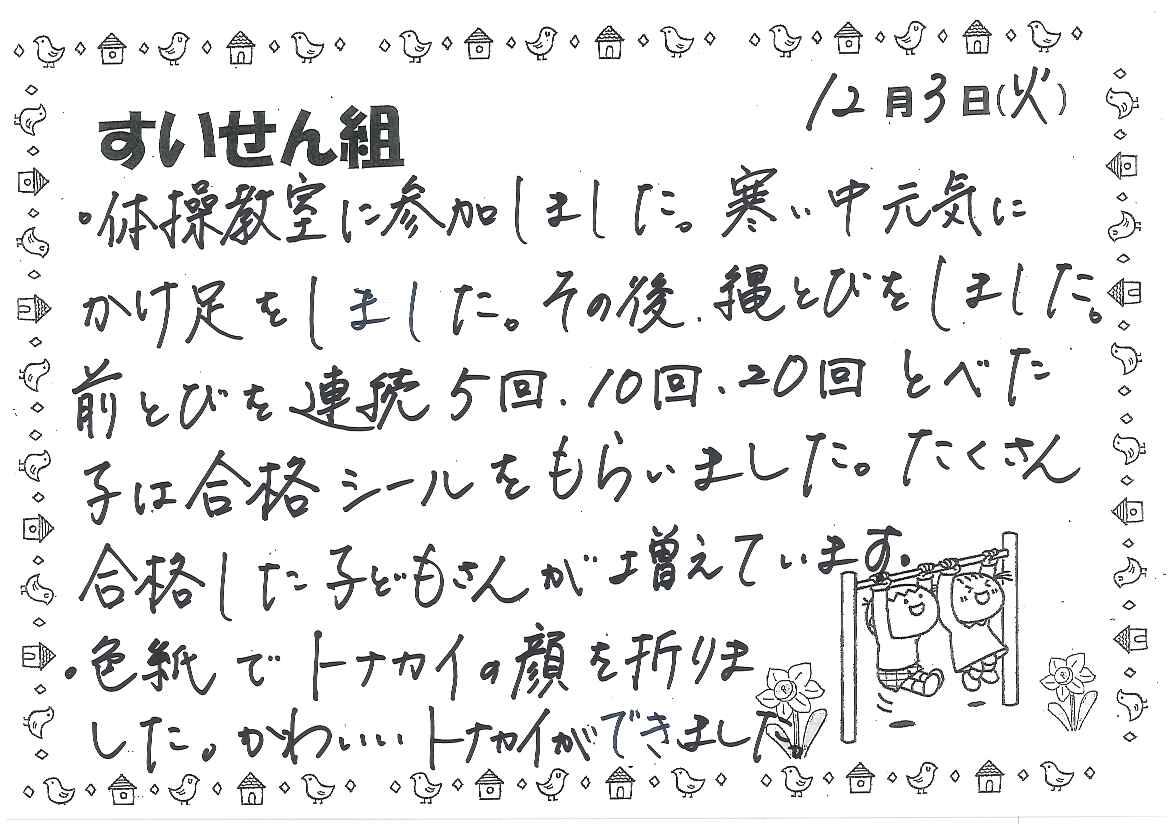 12月3日(火)
すいせん組
・体操教室に参加しました。寒い中元気に
かけ足をしました。その後、縄とびをしました。
前とびを連続5回、10回、20回とべた
子は合格シールをもらいました。たくさん
合格した子どもさんが増えています。
・色紙でトナカイの顔を折りま
した。かわいいトナカイができました。